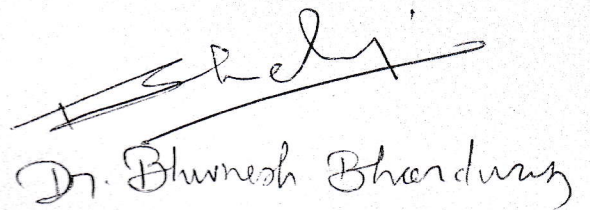 Dr. Bhuvnesh Bhardwaj